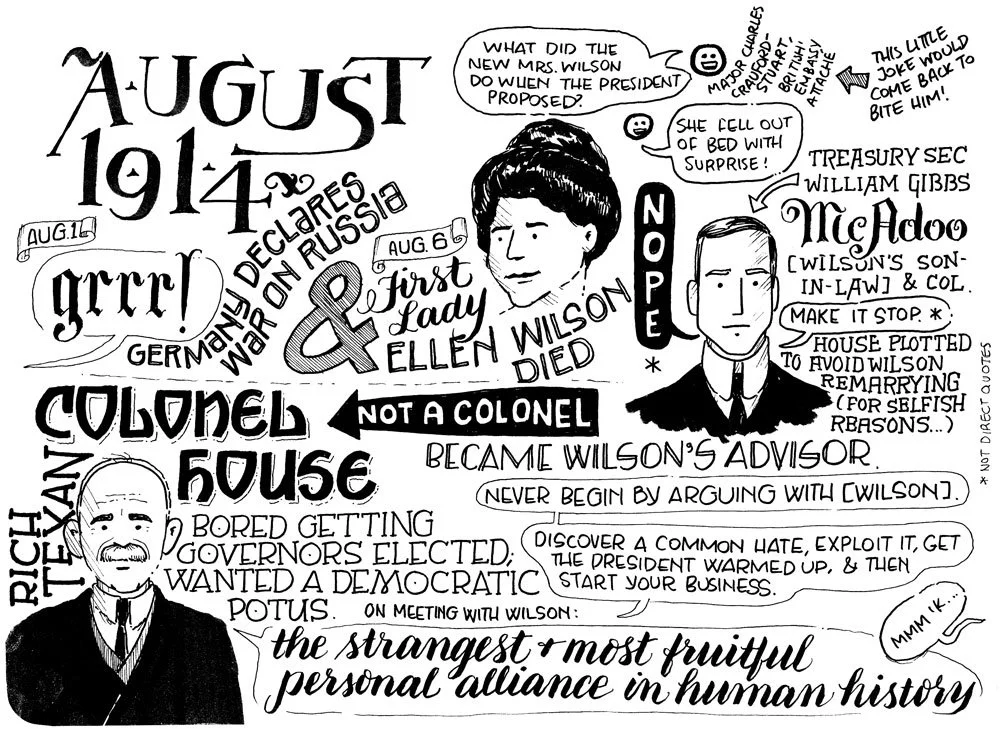 AUGUST
1914
AUG. 1
grrr!
GERMANY DECLARES
WAR ON RUSSIA
&
AUG. 6
First
Lady
ELLEN WILSON
DIED
WHAT DID THE
NEW MRS. WILSON
DO WHEN THE PRESIDENT
PROPOSED?
MAJOR CHARLES
CRAUFORD-
STUART,
BRITISH
EMBASSY
ATTACHÉ
THIS LITTLE
JOKE WOULD
COME BACK TO
BITE HIM!
SHE FELL OUT
OF BED WITH
SURPRISE!
NOPE
*
TREASURY SEC
WILLIAM GIBBS
McAdoo
[WILSON'S SON-
IN-LAW] & COL.
MAKE IT STOP. *
HOUSE PLOTTED
TO AVOID WILSON
REMARRYING
(FOR SELFISH
REASONS...)
* NOT DIRECT QUOTES
COLONEL
NOT A COLONEL
HOUSE
BECAME WILSON'S ADVISOR.
RICH
TEXAN
BORED GETTING
GOVERNORS ELECTED;
WANTED A DEMOCRATIC
POTUS.
NEVER BEGIN BY ARGUING WITH [WILSON].
DISCOVER A COMMON HATE, EXPLOIT IT, GET
THE PRESIDENT WARMED UP, & THEN
START YOUR BUSINESS.
ON MEETING WITH WILSON:
the strangest + most fruitful
personal alliance in human history
MMM IK...